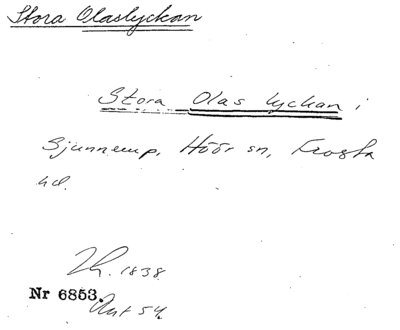 Stora Olaslyckan
Stora Olas lyckan i
Sjunnerup, Höör sn, Frosta
hd.
Lh. 1838
Nr 6853.
Ant 54.